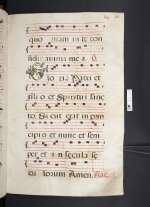 quoniam in te con
fidit anima mea. 
Gloria Patri et
filio et Spiritui sanc
to. Sicut erat in prin
cipio et nunc et sem
per et in secula se
culorum Amen.